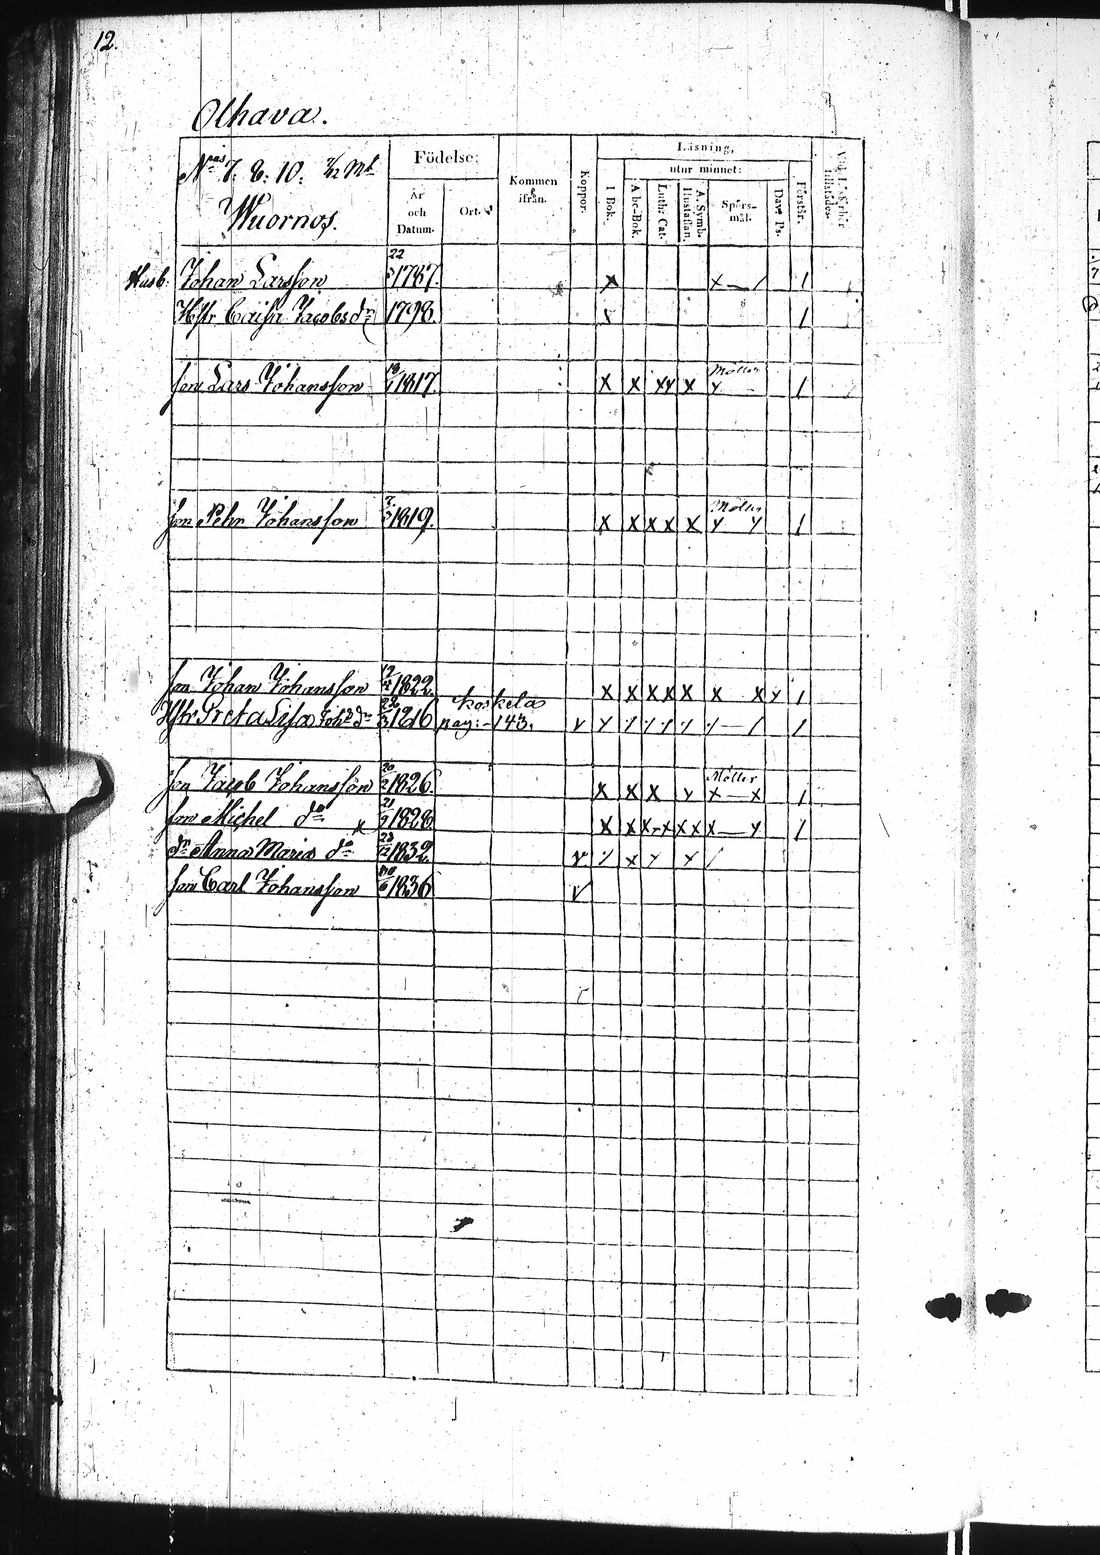 12.
Olhava.
N:ros 7. 8. 10. 7/12 Mtl
Wuornos.
Födelse:
År och Datum.
Ort.
Kommen ifrån.
Koppor.
Läsning,
utur minnet:
I Bok.
Abc-Bok.
Luth: Cat.
A. Symb. Hustaflan.
Spörs-mål.
Dav. Ps.
Förstår.
Husb. Johan Larsson 22/3 1787. x x — / /
Hstr Caisa Jacobsdr 1798. /
son Lars Johansson 1817. x x xx x Möller x /
son Pehr Johansson 7 1819. x x x x x Möller y y /
son Johan Johansson 1822 x x x x x x x y /
Hstr Greta Lisa Joh:dr 22/3 1816 Koskela pag: 143. v
son Jacob Johansson 20/2 1826. x x x y Möller x — x /
son Michel do x 21/9 1828 x x x - x x x x — y /
dr Anna Maria do 23/12 1832 v
son Carl Johansson 1836 v